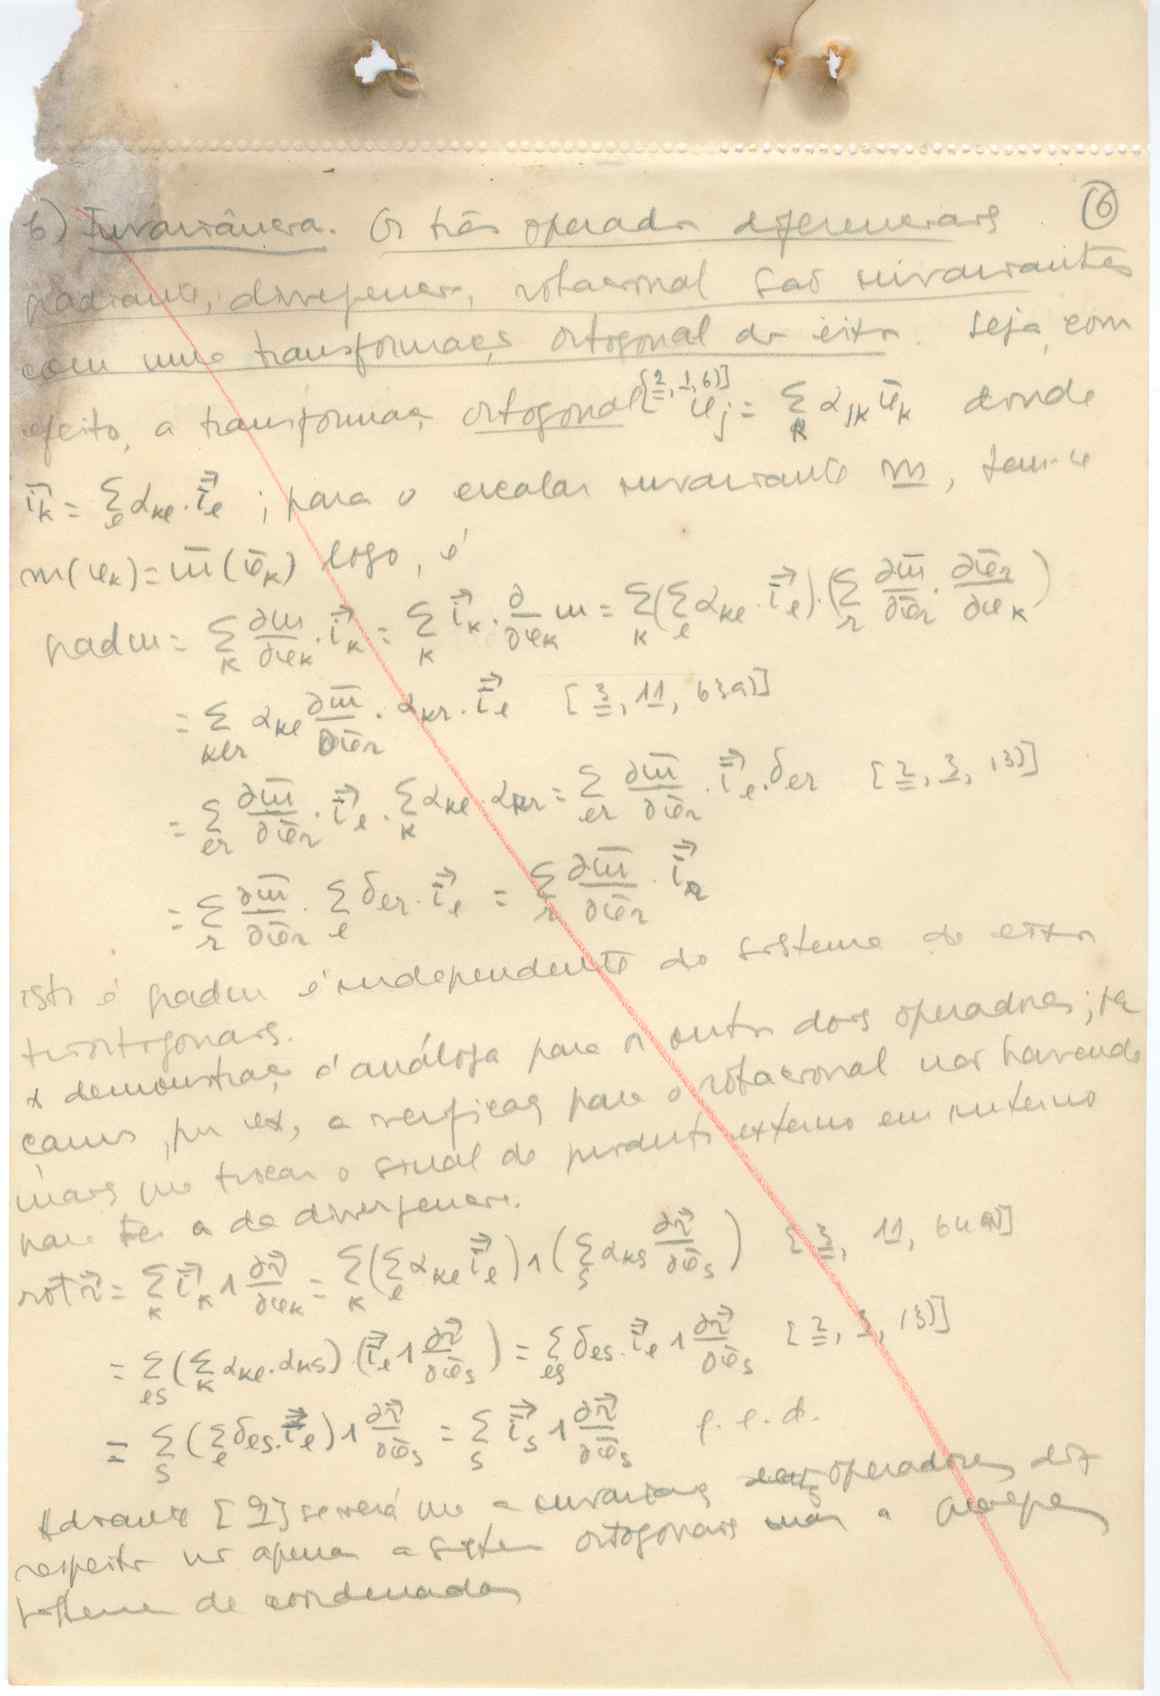 b) Invariância. Os três operadores diferenciais (6)
gradiante, divergência, rotacional são invariantes
com uma transformação ortogonal de eixos. Seja, com
efeito, a transformação ortogonal [2, 1, 6)] φ_j = Σ_k α_jk φ̄_k donde
i⃗_k = Σ_e α_ke . i̿⃗_e ; para o escalar invariante m, tem-se
m(φ_k) = m̄(φ̄_k) logo, é
grad m = Σ_k ∂m/∂φ_k . i⃗_k = Σ_k i⃗_k . ∂/∂φ_k m = Σ_k (Σ_e α_ke . i̿⃗_e) . (Σ_r ∂m̄/∂φ̄_r . ∂φ̄_r/∂φ_k)
= Σ_ker α_ke ∂m̄/∂φ̄_r . α_kr . i̿⃗_e [3, 11, 63a)]
= Σ_er ∂m̄/∂φ̄_r . i̿⃗_e . Σ_k α_ke . α_kr = Σ_er ∂m̄/∂φ̄_r . i̿⃗_e . δ_er [2, 3, 13)]
= Σ_r ∂m̄/∂φ̄_r . Σ_e δ_er . i̿⃗_e = Σ_r ∂m̄/∂φ̄_r . i̿⃗_r
isto é grad m é independente do sistema de eixos
triortogonais.
A demonstração é análoga para os outros dois operadores; fa
çamos, por ex, a verificação para o rotacional não havendo
mais que trocar o sinal do produto externo em interno
para ter a da divergência.
rot r⃗ = Σ_k i⃗_k ∧ ∂r⃗/∂φ_k = Σ_k (Σ_e α_ke i̿⃗_e) ∧ (Σ_s α_ks ∂r⃗/∂φ̄_s) [3, 11, 64a)]
= Σ_es (Σ_k α_ke . α_ks) . (i̿⃗_e ∧ ∂r⃗/∂φ̄_s) = Σ_es δ_es . i̿⃗_e ∧ ∂r⃗/∂φ̄_s [2, 3, 13)]
= Σ_s (Σ_e δ_es . i̿⃗_e) ∧ ∂r⃗/∂φ̄_s = Σ_s i̿⃗_s ∧ ∂r⃗/∂φ̄_s q. e. d.
Adiante [9] se verá que a invariança operadores diz
respeito não apenas a sistemas ortogonais mas a qualquer
sistema de coordenadas